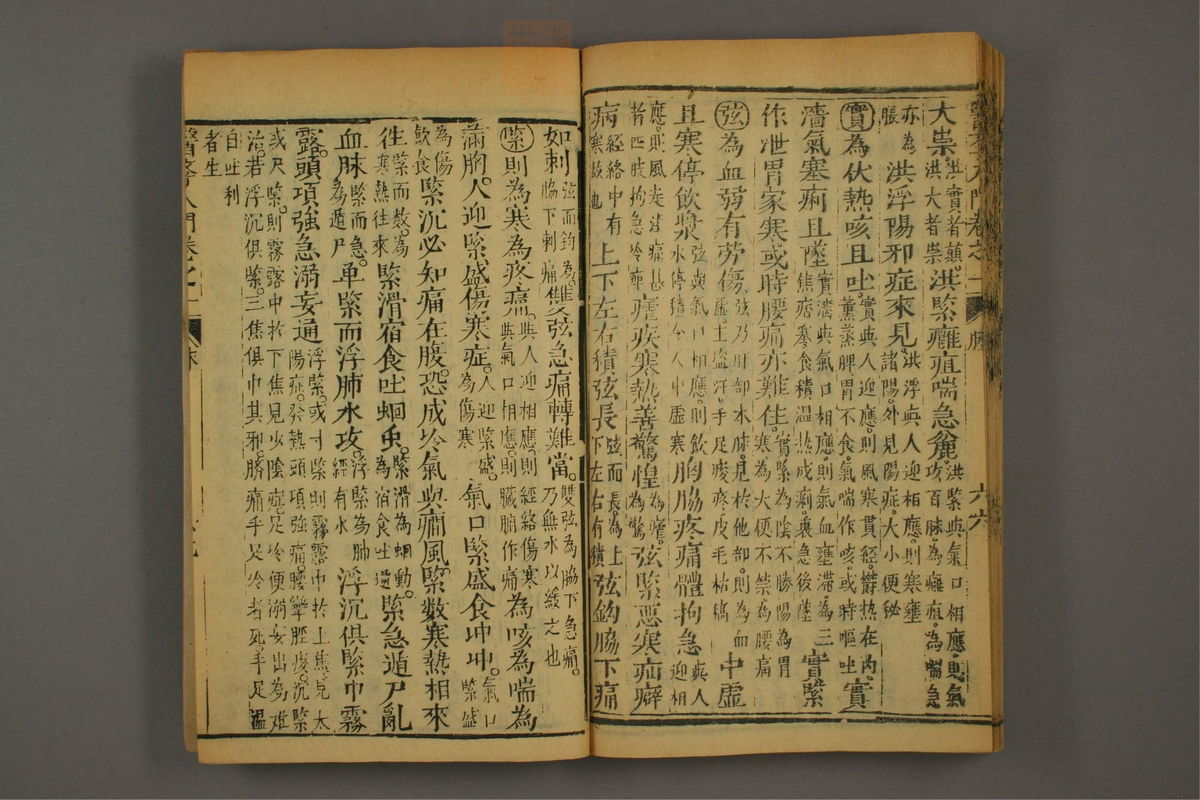 大祟洪實者顛洪大者祟洪緊癰疽喘急兼洪緊與氣口相應則氣攻百脉為癰疽為喘急
亦為脹洪浮陽邪症來見洪浮與人迎相應則寒壅諸陽外見陽症大小便秘
實為伏熱咳且吐實與人迎應則風寒貫經欝熱在内薰蒸脾胃不食氣喘作咳或時嘔吐實
濇氣塞痢且墜實濇與氣口相應則氣血壅滯為三焦痞寒食積温熱成痢裏急後墜實緊
作泄胃家寒或時腰痛亦難住實緊為陰不勝陽為胃寒為大便不禁為腰痛
弦為血弱有勞傷弦乃肝部本脉見於他部則為血虛主盜汗手足痠疼皮毛枯槁中虛
且寒停飲漿弦與氣口相應則飲水停積令人中虛寒胸脇疼痛體拘急與人迎相
應則風走注痛甚者四肢拘急冷痺瘧疾寒熱善驚惶為瘧為驚弦緊惡寒疝癖
病經絡中有寒故也上下左右積弦長弦而長為上下左右有積弦鈎脇下痛
如刺弦而鈎為脇下刺痛雙弦急痛轉難當雙弦為脇下急痛乃無水以緩之也
緊則為寒為疼痛與人迎相應則經絡傷寒與氣口相應則臟腑作痛為咳為喘為
滿胸人迎緊盛傷寒症人迎緊盛為傷寒氣口緊盛食冲冲氣口緊盛
為傷飲食緊沉必知痛在腹恐成冷氣與痛風緊數寒熱相來
往緊而數為寒熱往來緊滑宿食吐蛔虫緊滑為蛔動為宿食吐逆緊急遁尸亂
血脉緊而急為遁尸單緊而浮肺水攻浮緊為肺經有水浮沉俱緊中霧
露頭項強急溺妄通浮緊或寸緊則霧露中於上焦見太陽症發熱頭項強痛腰攣脛痠沉緊
或尺緊則霧露中於下焦見少陰症足冷便溺妄出為難治若浮沉俱緊三焦俱中其邪臍痛手足冷者死手足温
自吐利者生